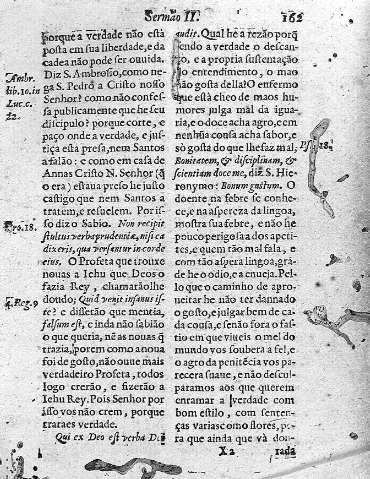 Sermão II.
162
porque a verdade não està
posta em sua liberdade, e da
cadea não pode ser ouvida.
Diz S. Ambrosio, como ne-
ga S. Pedro a Cristo nosso
Senhor? como não confes-
sa publicamente que he seu
discipulo? porque corte, e
paço onde a verdade, e jus-
tiça està presa, nem Santos
a falão: e como em casa de
Annas Cristo N. Senhor (q̃
o era) estaua preso he justo
castigo que nem Santos a
tratem, e resuelem. Por is-
so diz o Sabio. Non recipit
stultus verba prudentiæ, nisi ea
dixeris, quæ versantur in corde
eius. O Profeta que trouxe
nouas a Iehu que Deos o
fazia Rey, chamarãolhe
doudo; Quid venit insanus is-
te? e dissetão que mentia,
falsum est, e inda não sabião
o que queria, nẽ as nouas q̃
trazia, porem como a noua
foi de gosto, não ouue mais
verdadeiro Profeta, todos
logo crerão, e fizerão a
Iehu Rey. Pois Senhor por
isso vos não crem, porque
trataes verdade.
Qui ex Deo est verba D.
Ambr.
lib. 10. in
Luc. c.
22.
Pro. 18.
4. Reg. 9
audit. Qual he a rezão porq̃
sendo a verdade o descan-
ço, e a propria sustentação
do entendimento, o mao
não gosta della? O enfermo
que està cheo de maos hu-
mores julga mal da igua-
ria, e o doce acha agro, com
nenhũa cousa acha sabor, e
só gosta do que lhe faz mal;
Bonitatem, & disciplinam, &
scientiam doce me, diz S. Hie-
ronymo: Bonum gustum. O
doente na febre se conhe-
ce, e na aspereza da lingoa,
mostra sua febre, e não he
pouco perigosa a dos apeti-
tes, e quem tão mal fala, e
com tão aspera lingoa, grã-
de he o odio, e a enueja. Pel-
lo que o caminho de apro-
ueitar he não ter dannado
o gosto, e julgar bem de ca-
da cousa, e senão fora o fas-
tio em que viueis o mel do
mundo vos soubera a fel, e
o agro da penitẽcia vos pa-
recera suaue, e não descul-
paramos aos que querem
enramar a verdade com
bom estilo, com senten-
ças varias como flores, pe-
ra que ainda que và dou-
Ps. 18.
X 2
rada